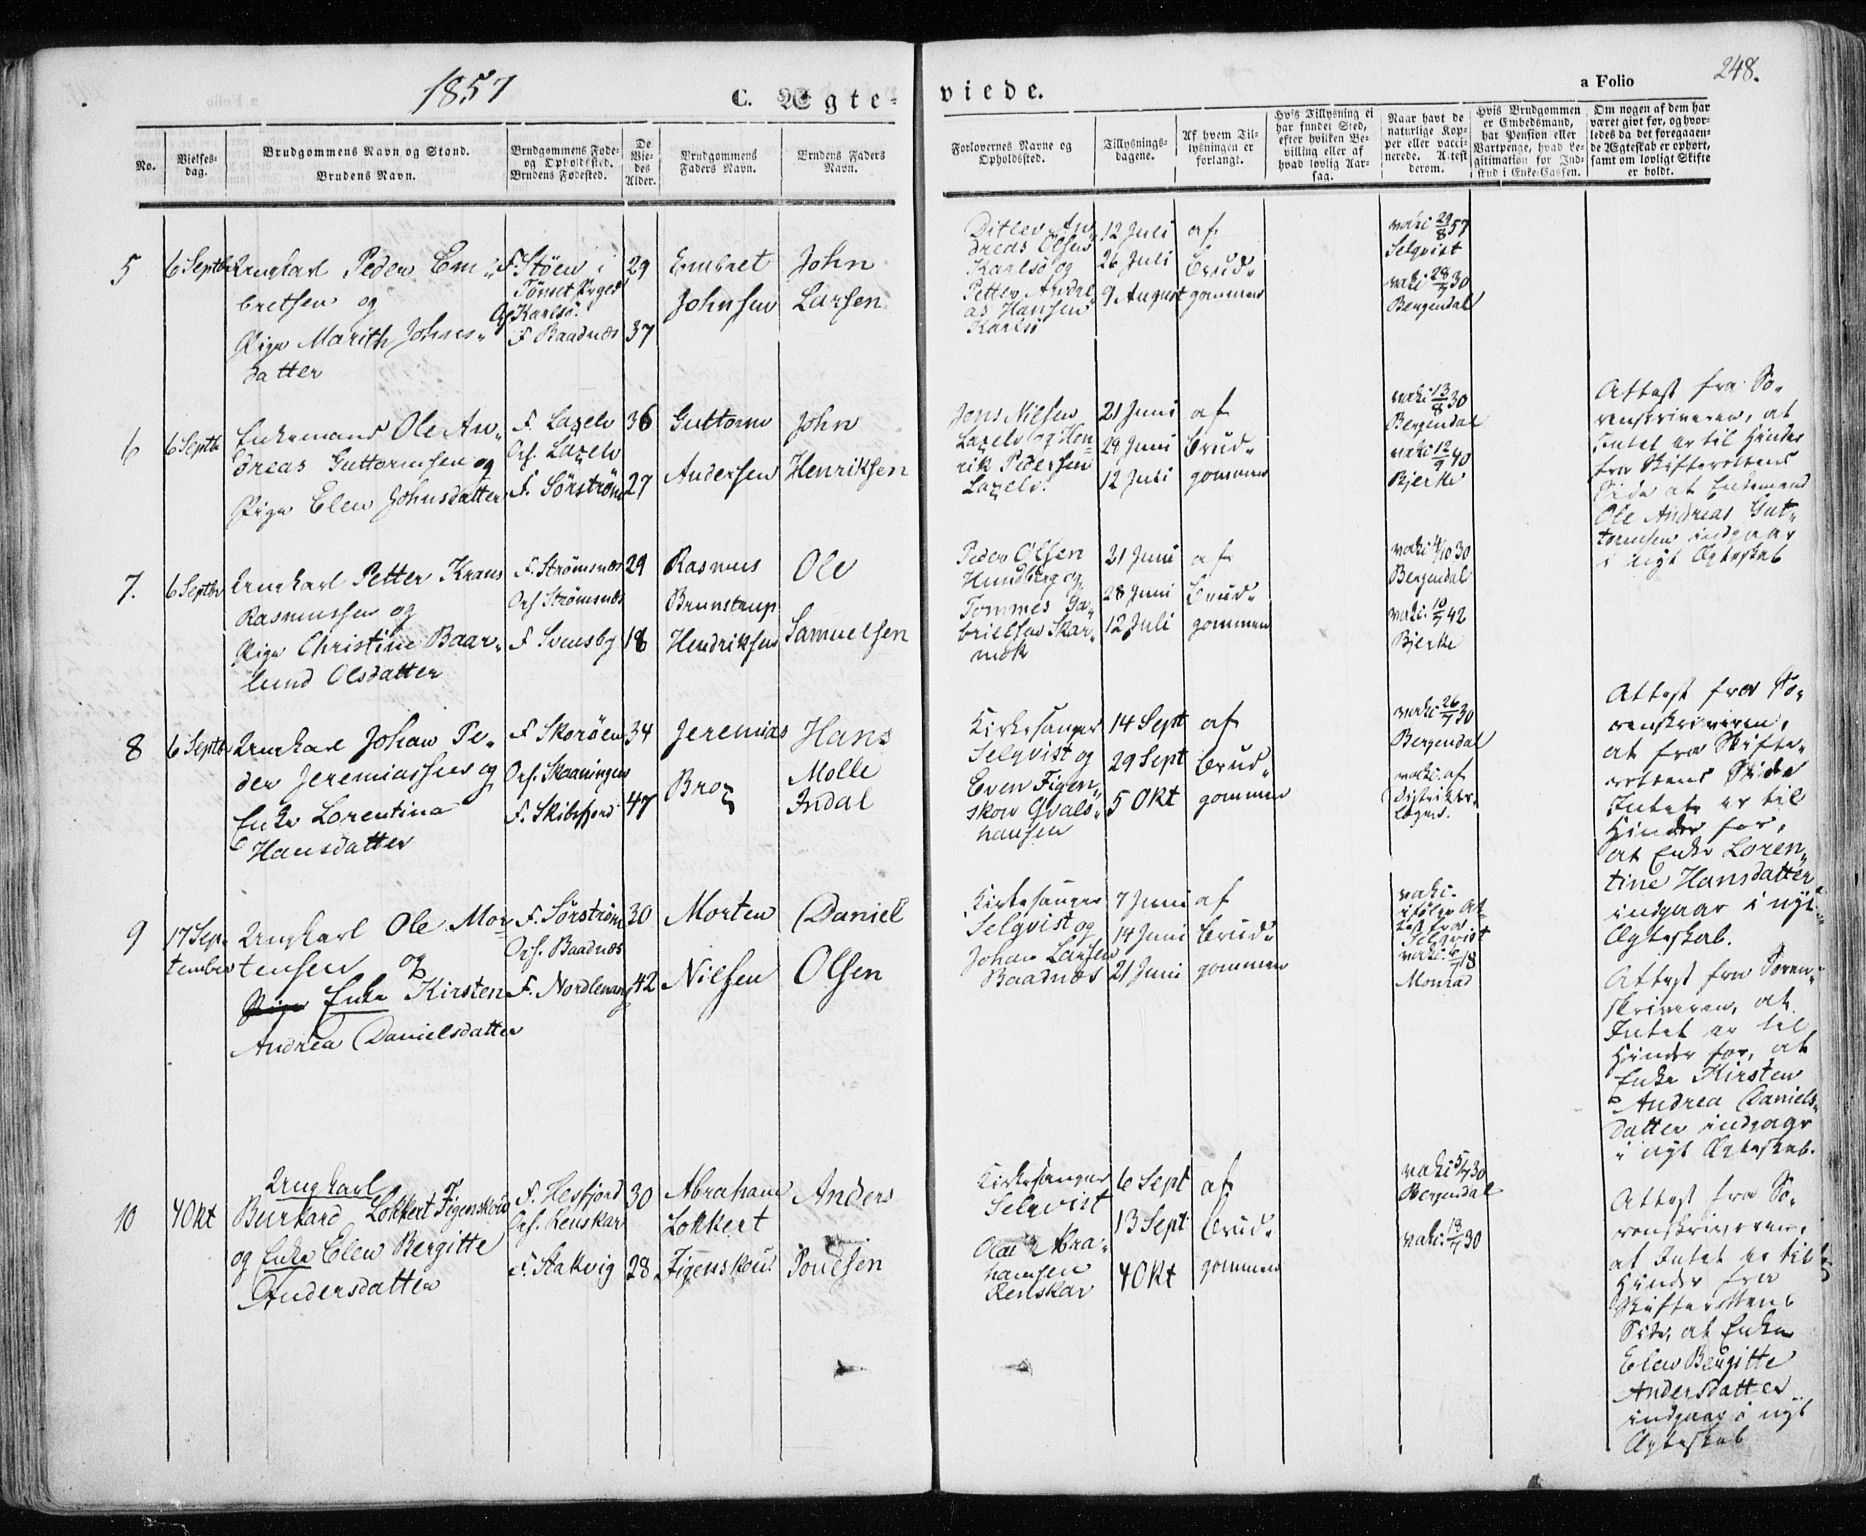 1857
C. Ægte-
viede.
a Folio
248.
No.
Vielses-
dag.
Brudgommens Navn og Stand.
Brudens Navn.
Brudgommens Føde-
og Opholdssted.
Brudens Fødested.
De
Vie-
des
Alder.
Brudgommens
Faders Navn.
Brudens Faders
Navn.
Forlovernes Navne og
Opholdssted.
Tillysnings-
dagene.
Af hvem Til-
lysningen er
forlangt.
Hvis Tillysning ei
har fundet Sted,
efter hvilken Be-
villing eller af
hvad lovlig Aar-
sag.
Naar havt de
naturlige Kop-
per eller vacci-
nerede. Attest
derom.
Hvis Brudgommen
er Embedsmand,
har Pension eller
Vartpenge, hvad Le-
gitimation for Ind-
skud i Enke-Cassen.
Om nogen af dem har
været givt før, og hvor-
ledes da det foregaaen-
de Ægteskab er ophørt,
samt om lovligt Skifte
er holdt.
5
6 Septbr
Ungkarl Peder Em-
bretsen og
Pige Marith Johns-
datter
F. Støen i
Tønset Prgjd
Karlsø.
F Baadnæs
29
37
Embret
Johnsen
John
Larsen
Ditlev An-
dreas Olsen
Karlsø og
Petter Andre-
as Hansen
Karlsø
12 Juli
26 Juli
9 August
af
Brud-
gommen
vaki 29/8 57
Selqvist
vaki 28/7 30
Bergendal
6
6 Septb
Enkemand Ole An-
dreas Guttormsen og
Pige Elen Johnsdatter
F. Laxelv
Oph. Laxelv
F. Sørstrøm
36
27
Guttorm
Andersen
John
Henriksen
Jens Nilsen
Laxelv og Hen-
rik Pedersen
Laxelv.
21 Juni
29 Juni
12 Juli
af
Brud-
gommen
vaki 13/8 30
Bergendal
vaki 12/9 40
Bjerke
Attest fra So-
renskriveren, at
Intet er til Hinder
fra Skifterettens
Side at Enkemand
Ole Andreas Gut-
tormsen indgaar
i nyt Ægteskab
7.
6 Septbr
Ungkarl Petter Krans
Rasmussen og
Pige Christine Baar-
lund Olsdatter
F. Strømsnæs
Oph Strømsnæs
F. Svensby
29
18
Rasmus
Brunstrup
Hendriksen
Ole
Samuelsen
Peder Olsen
Hundberg og
Tommes Ga-
brielsen Skar-
mok
21 Juni
28 Juni
12 Juli
af
Brud-
gommen
vaki 4/10 30
Bergendal
vaki 10/7 42
Bjerke
8
6 Septbr
Ungkarl Johan Pe-
der Jeremiassen og
Enke Lorentina
Hansdatter
F. Skorøen
Oph. Skaaningen
F. Skibsfjord
34
47
Jeremias
Brox
Hans
Molle
Indal
Kirkesanger
Selqvist og
Even Figen-
skou Qvals-
hausen
14 Sept
29 Sept
5 Okt
af
Brud-
gommen
vaki 26/7 30
Bergendal
vaki. af
Distrikts-
lægen.
Attest fra So-
renskriveren,
at fra Skifte-
rettens Side
Intet er til
Hinder for,
at Enke Loren-
tine Hansdatter
indgaar i nyt
Ægteskab.
9
17 Sep-
tember
Ungkarl Ole Mor-
tensen og
Pige Enke Kirsten
Andrea Danielsdatter
F. Sørstrøm
Oph. Baadnæs
F. Nordlenang
30
42
Morten
Nilsen
Daniel
Olsen
Kirkesanger
Selqvist og
Johan Larsen
Baadnæs
7 Juni
14 Juni
21 Juni
af
Brud-
gommen
vaki-
ifølge At-
test fra
Selqvist
Monrad
Attest fra Soren-
skriveren, at
Intet er til
Hinder for, at
Enke Kirsten
Andrea Daniels-
datter indgaar
i nyt Ægteskab.
10
4 Okt
Ungkarl
Burkard Lokkert Figenskou
og Enke Elen Bergitte
Andersdatter
F. Hesfjord
Oph. Renskar
F. Stakvig
30
28
Abraham
Lokkert
Figenskou
Anders
Poulsen
Kirkesanger
Selqvist
Olai Abra-
hamsen
Renskar
6 Sept
13 Sept
4 Okt
af
Brud-
gommen
vaki 5/7 30
Bergendal
vaki. 13/7 30
Attest fra So-
renskriveren,
at Intet er til
Hinder fra
Skifterettens
Side, at Enke
Elen Bergitte
Andersdatter
indgaar i nyt
Ægteskab